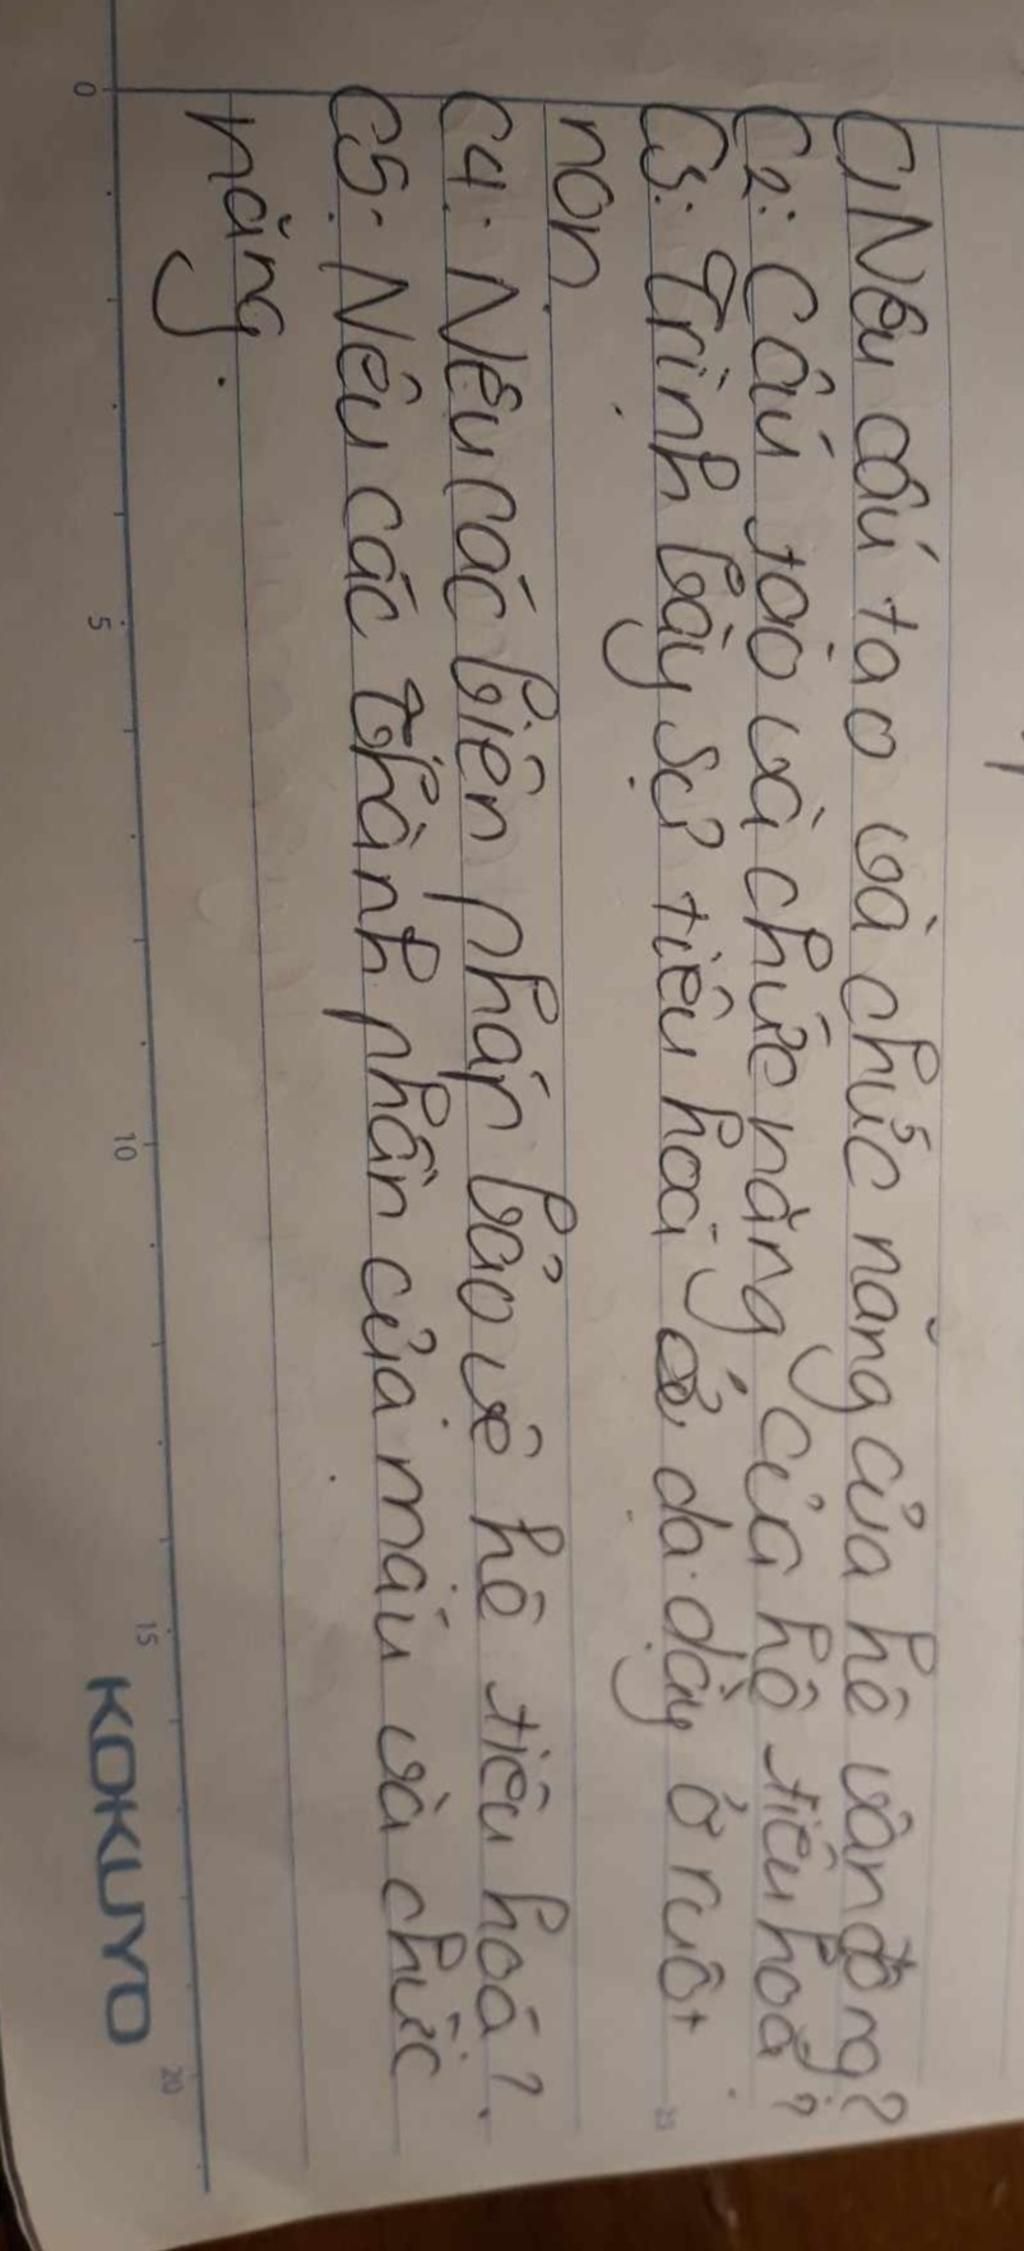 C1 Nêu cấu tạo và chức năng của hê vân đông?
C2: Cấu tạo và chức năng của hê tiêu hoá?
C3: Trình bày sự tiêu hoá ở dạ dày ở ruôt
non.
C4: Nêu các biên pháp bảo vê hê tiêu hoá?
C5. Nêu các thành phần của máu và chức
năng.
0
5
10
15
20
KOKUYO